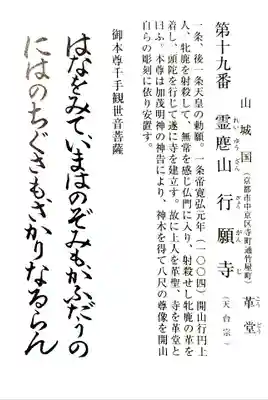 第十九番
山城国（京都市中京区寺町通竹屋町）
霊麀山 行願寺 革堂（天台宗）
れいゆうざん ぎょうがんじ こうどう
一条、後一条天皇の勅願。一条帝寛弘元年（一〇〇四）開山行円上
人、牝鹿を射殺して、無常を感じ仏門に入り、射殺せし牝鹿の革を
着し、頭陀を行じて遂に寺を建立す。故に上人を革聖、寺を革堂と
曰ふ。本尊は加茂明神の神告により、神木を得て八尺の尊像を開山
自らの彫刻に依り安置す。
御本尊千手観世音菩薩
はなをみていまはのぞみもかふだうの
にはのちぐさもさかりなるらん